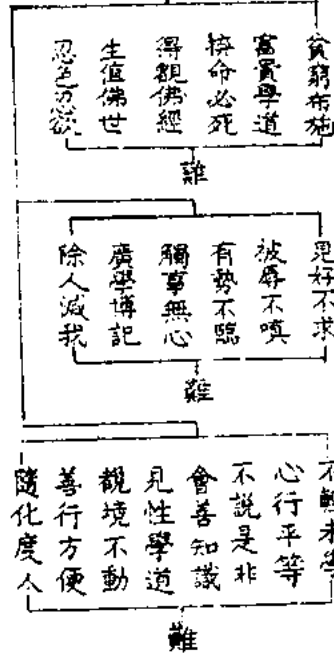 貧窮布施
富貴學道
拚命必死
得覩佛經
生值佛世
忍色忍欲
難
見好不求
被辱不嗔
有勢不臨
觸事無心
廣學博記
除人滅我
難
不輕未學
心行平等
不說是非
會善知識
見性學道
觀境不動
善行方便
隨化度人
難